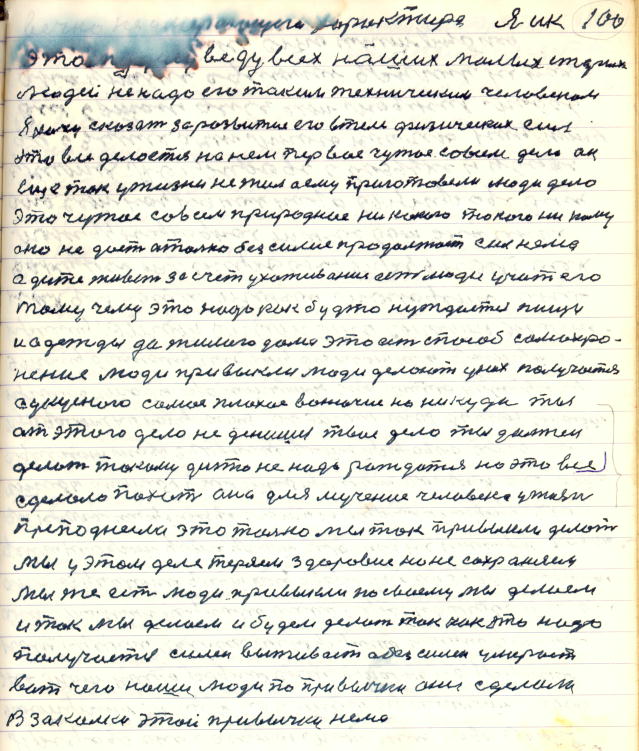 характира Я ик 100
это веду всех наших малых старых
людей не надо его таким техническим человеком
я хочу сказат за розвитие его втем физических сил
это вле делоется на нем первое чужое совсем дело он
еще ток ужизни не жил аему приготовели люди дело
это чужое совсем природние никокого токого никому
оно не дает атолко безсилие продолжает сил нема
адите живет засчет ухаживание его люди учат его
тому чему это надо как будто нуждается пищи
иадежды да жилого дома это ест способ самохро-
нение люди привыкли люди делоют уних получается
самое плохое но никуда ты
от этого дело не денишся твое дело ты должен
делат токому дитю не надо рождатся но это вле
сделала похот она для мучение человека ужизни
преподнесла это толко мы ток привыкли делат
мы у этом деле теряем здоровие но не сохраняем
мы же ест люди привыкли по своему мы делаем
и ток мы делаем и будем делат ток как это надо
получается силен выживает абез силен умерает
вот чего наши люди по привычки они сделали
В закалки этой привычки нема